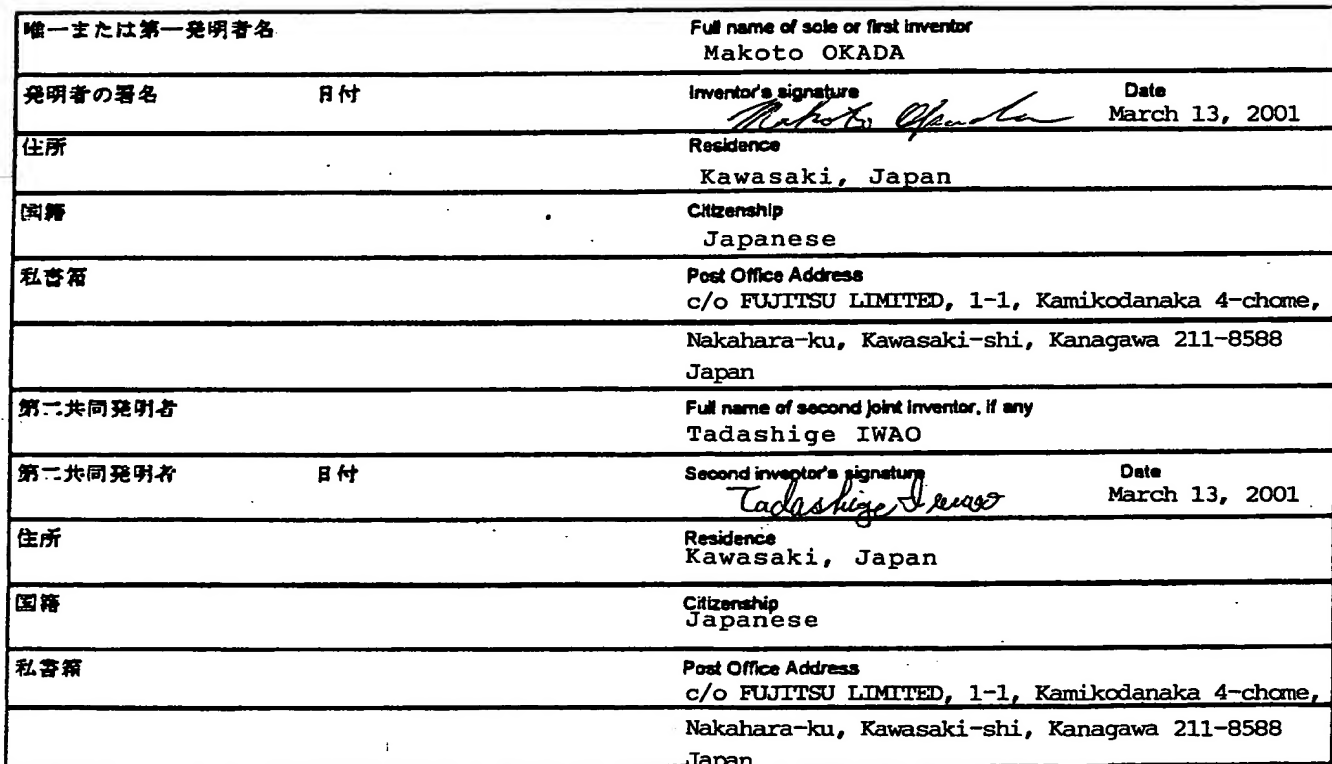 唯一または第一発明者名 Full name of sole or first inventor
Makoto OKADA
発明者の署名 日付 Inventor's signature Date
Makoto Okada March 13, 2001
住所 Residence
Kawasaki, Japan
国籍 Citizenship
Japanese
私書箱 Post Office Address
c/o FUJITSU LIMITED, 1-1, Kamikodanaka 4-chome,
Nakahara-ku, Kawasaki-shi, Kanagawa 211-8588
Japan
第二共同発明者 Full name of second joint inventor, if any
Tadashige IWAO
第二共同発明者 日付 Second inventor's signature Date
Tadashige Iwao March 13, 2001
住所 Residence
Kawasaki, Japan
国籍 Citizenship
Japanese
私書箱 Post Office Address
c/o FUJITSU LIMITED, 1-1, Kamikodanaka 4-chome,
Nakahara-ku, Kawasaki-shi, Kanagawa 211-8588
Japan